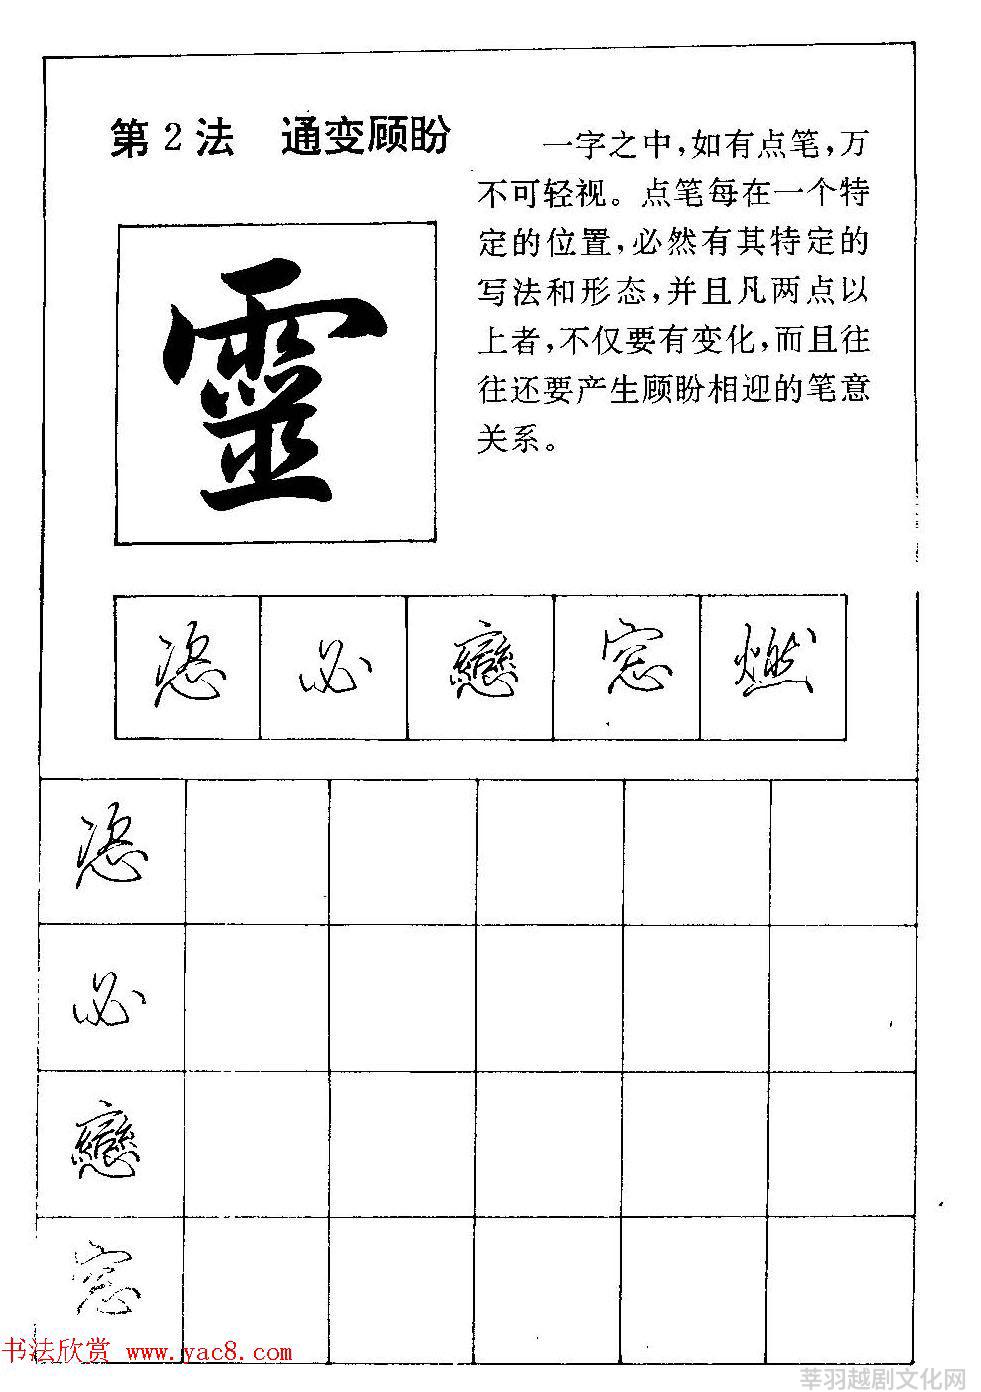 第2法 通变顾盼
一字之中，如有点笔，万
不可轻视。点笔每在一个特
定的位置，必然有其特定的
写法和形态，并且凡两点以
上者，不仅要有变化，而且往
往还要产生顾盼相迎的笔意
关系。
靈
恣 必 戀 窓 燃
恣
必
戀
窓
书法欣赏 www.yac8.com
莘羽越剧文化网